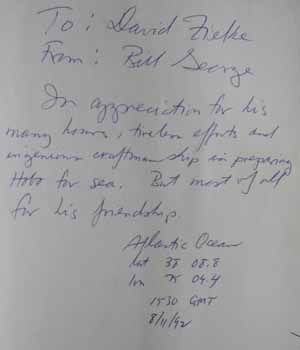 To: David Zielke
From: Bill George
In appreciation for his
many hours, tireless efforts and
ingenious craftmanship in preparing
Hobo for sea. But most of all
for his friendship.
Atlantic Ocean
lat 38 08.8
lon 75 04.4
1530 GMT
8/11/92